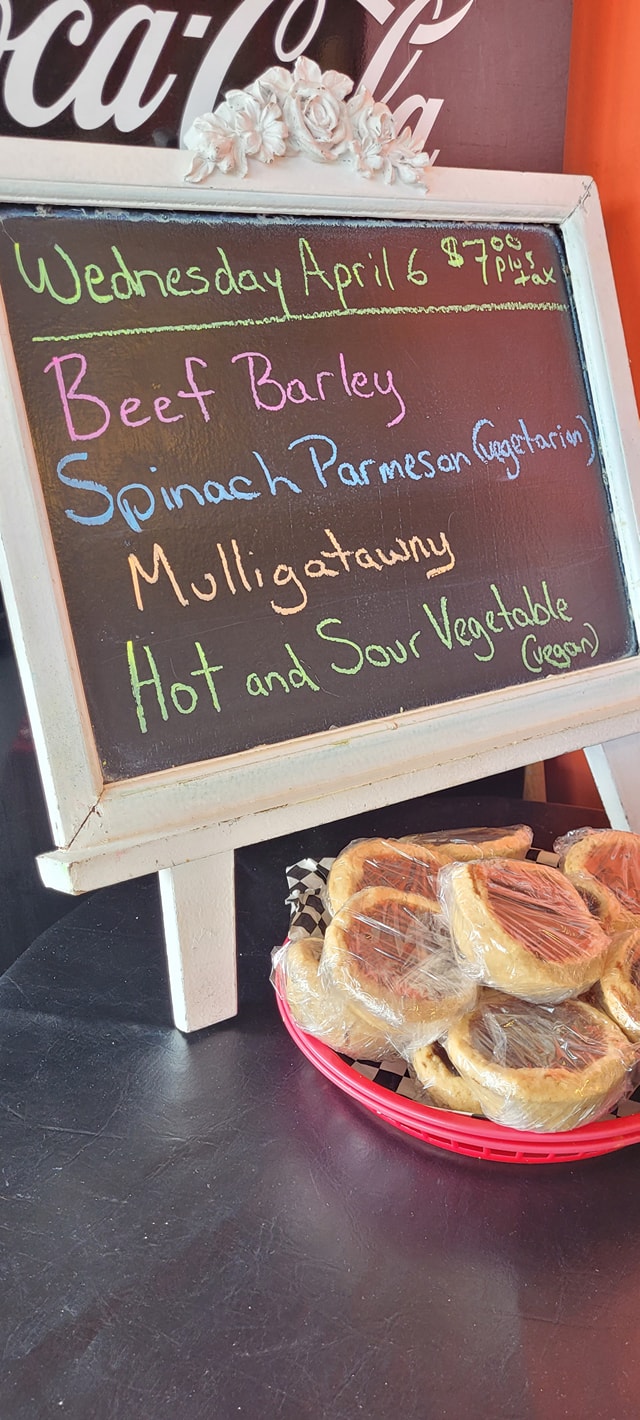 Coca-Cola
Wednesday April 6 $7.00
plus
tax
Beef Barley
Spinach Parmesan (vegetarian)
Mulligatawny
Hot and Sour Vegetable
(vegan)